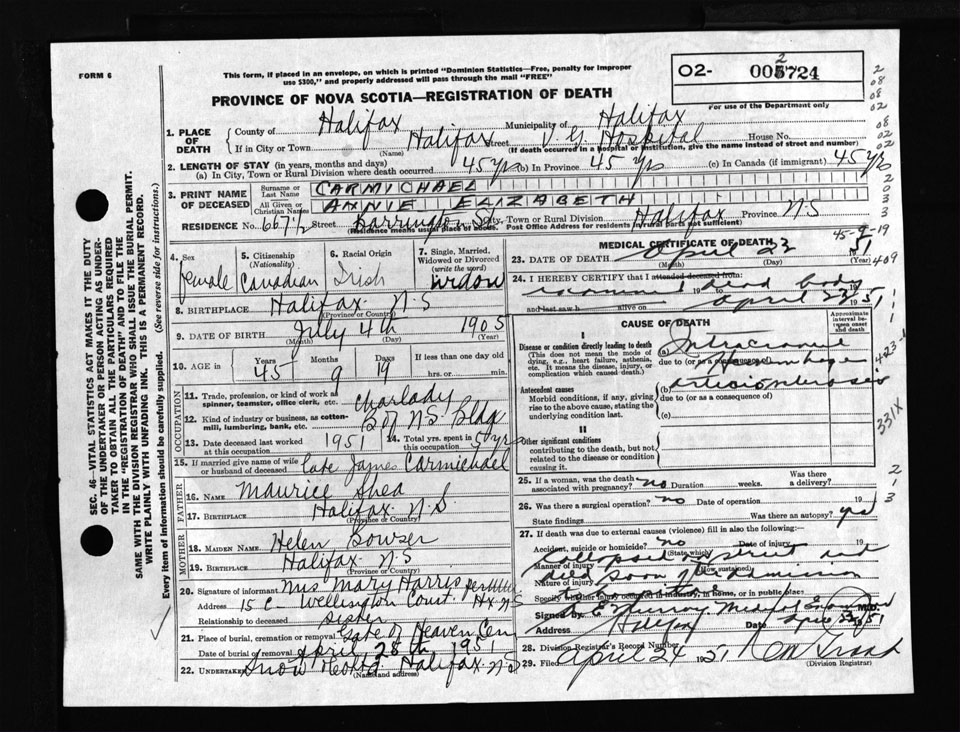 FORM 6
This form, if placed in an envelope, on which is printed "Dominion Statistics—Free, penalty for improper
use $300," and properly addressed will pass through the mail "FREE"
PROVINCE OF NOVA SCOTIA—REGISTRATION OF DEATH
02- 005724
2
For use of the Department only
1. PLACE OF DEATH
County of Halifax Municipality of Halifax
If in City or Town Halifax Street V.G. Hospital House No.
(Name) (If death occurred in a hospital or institution, give the name instead of street and number)
2. LENGTH OF STAY (in years, months and days)
(a) In City, Town or Rural Division where death occurred 45 yrs (b) In Province 45 yrs (c) In Canada (if immigrant) 45 yrs
3. PRINT NAME OF DECEASED
Surname or Last Name CARMICHAEL
All Given or Christian Names ANNIE ELIZABETH
RESIDENCE No. 667 1/2 Street Barrington St City, Town or Rural Division Halifax Province N.S
(Residence means usual place of abode. Post Office Address for residents in rural parts not sufficient)
4. Sex female
5. Citizenship (Nationality) Canadian
6. Racial Origin Irish
7. Single, Married, Widowed or Divorced (write the word) widow
8. BIRTHPLACE Halifax N.S
(Province or Country)
9. DATE OF BIRTH July 4th 1905
(Month) (Day) (Year)
10. AGE in Years 45 Months 9 Days 19 If less than one day old hrs. or min.
OCCUPATION
11. Trade, profession, or kind of work as spinner, teamster, office clerk, etc. charlady
12. Kind of industry or business, as cotton-mill, lumbering, bank, etc. B of NS Bldg
13. Date deceased last worked at this occupation 1951
14. Total yrs. spent in this occupation 5 yrs
15. If married give name of wife or husband of deceased late James Carmichael
FATHER
16. Name Maurice Shea
17. BIRTHPLACE Halifax N.S
(Province or Country)
MOTHER
18. MAIDEN NAME Helen Bowser
19. BIRTHPLACE Halifax N.S
(Province or Country)
20. Signature of informant Mrs Mary Harris
Address 15 C- Wellington Court. Hx N.S
Relationship to deceased sister
21. Place of burial, cremation or removal Gate of Heaven Cem
Date of burial or removal April 25th 1951
22. UNDERTAKER Snow & Co Ltd Halifax N.S
(Name and address)
MEDICAL CERTIFICATE OF DEATH
45-9-19
23. DATE OF DEATH April 23 51
(Month) (Day) (Year)
409
24. I HEREBY CERTIFY that I attended deceased from:
examined 19 dead body 19
and last saw h alive on april 23 1951
CAUSE OF DEATH
Approximate interval between onset and death
I
Disease or condition directly leading to death
(This does not mean the mode of dying, e.g., heart failure, asthenia, etc. It means the disease, injury, or complication which caused death.)
(a) Intracranial
due to (or as a consequence of) Hemorrhage
Antecedent causes
Morbid conditions, if any, giving rise to the above cause, stating the underlying condition last.
(b) arteriosclerosis
due to (or as a consequence of)
(c)
331X
II
Other significant conditions
contributing to the death, but not related to the disease or condition causing it.
25. If a woman, was the death associated with pregnancy? no Duration weeks. Was there a delivery?
26. Was there a surgical operation? no Date of operation 19
State findings Was there an autopsy? yes
27. If death was due to external causes (violence) fill in also the following:—
Accident, suicide or homicide? no Date of injury 19
(State which)
Manner of injury Collapsed on street and
(How sustained)
Nature of injury died soon after admission
Specify whether injury occurred in industry, in home, or in public place:
Signed by E Murray Medical Examiner M.D.
Address Halifax Date apr 23/51
28. Division Registrar's Record Number
29. Filed April 24 1951
(Division Registrar)
SEC. 46—VITAL STATISTICS ACT MAKES IT THE DUTY
OF THE UNDERTAKER OR PERSON ACTING AS UNDER-
TAKER TO OBTAIN ALL THE PARTICULARS REQUIRED
IN THE "REGISTRATION OF DEATH" AND TO FILE THE
SAME WITH THE DIVISION REGISTRAR WHO SHALL ISSUE THE BURIAL PERMIT.
WRITE PLAINLY WITH UNFADING INK. THIS IS A PERMANENT RECORD.
Every item of information should be carefully supplied. (See reverse side for instructions.)